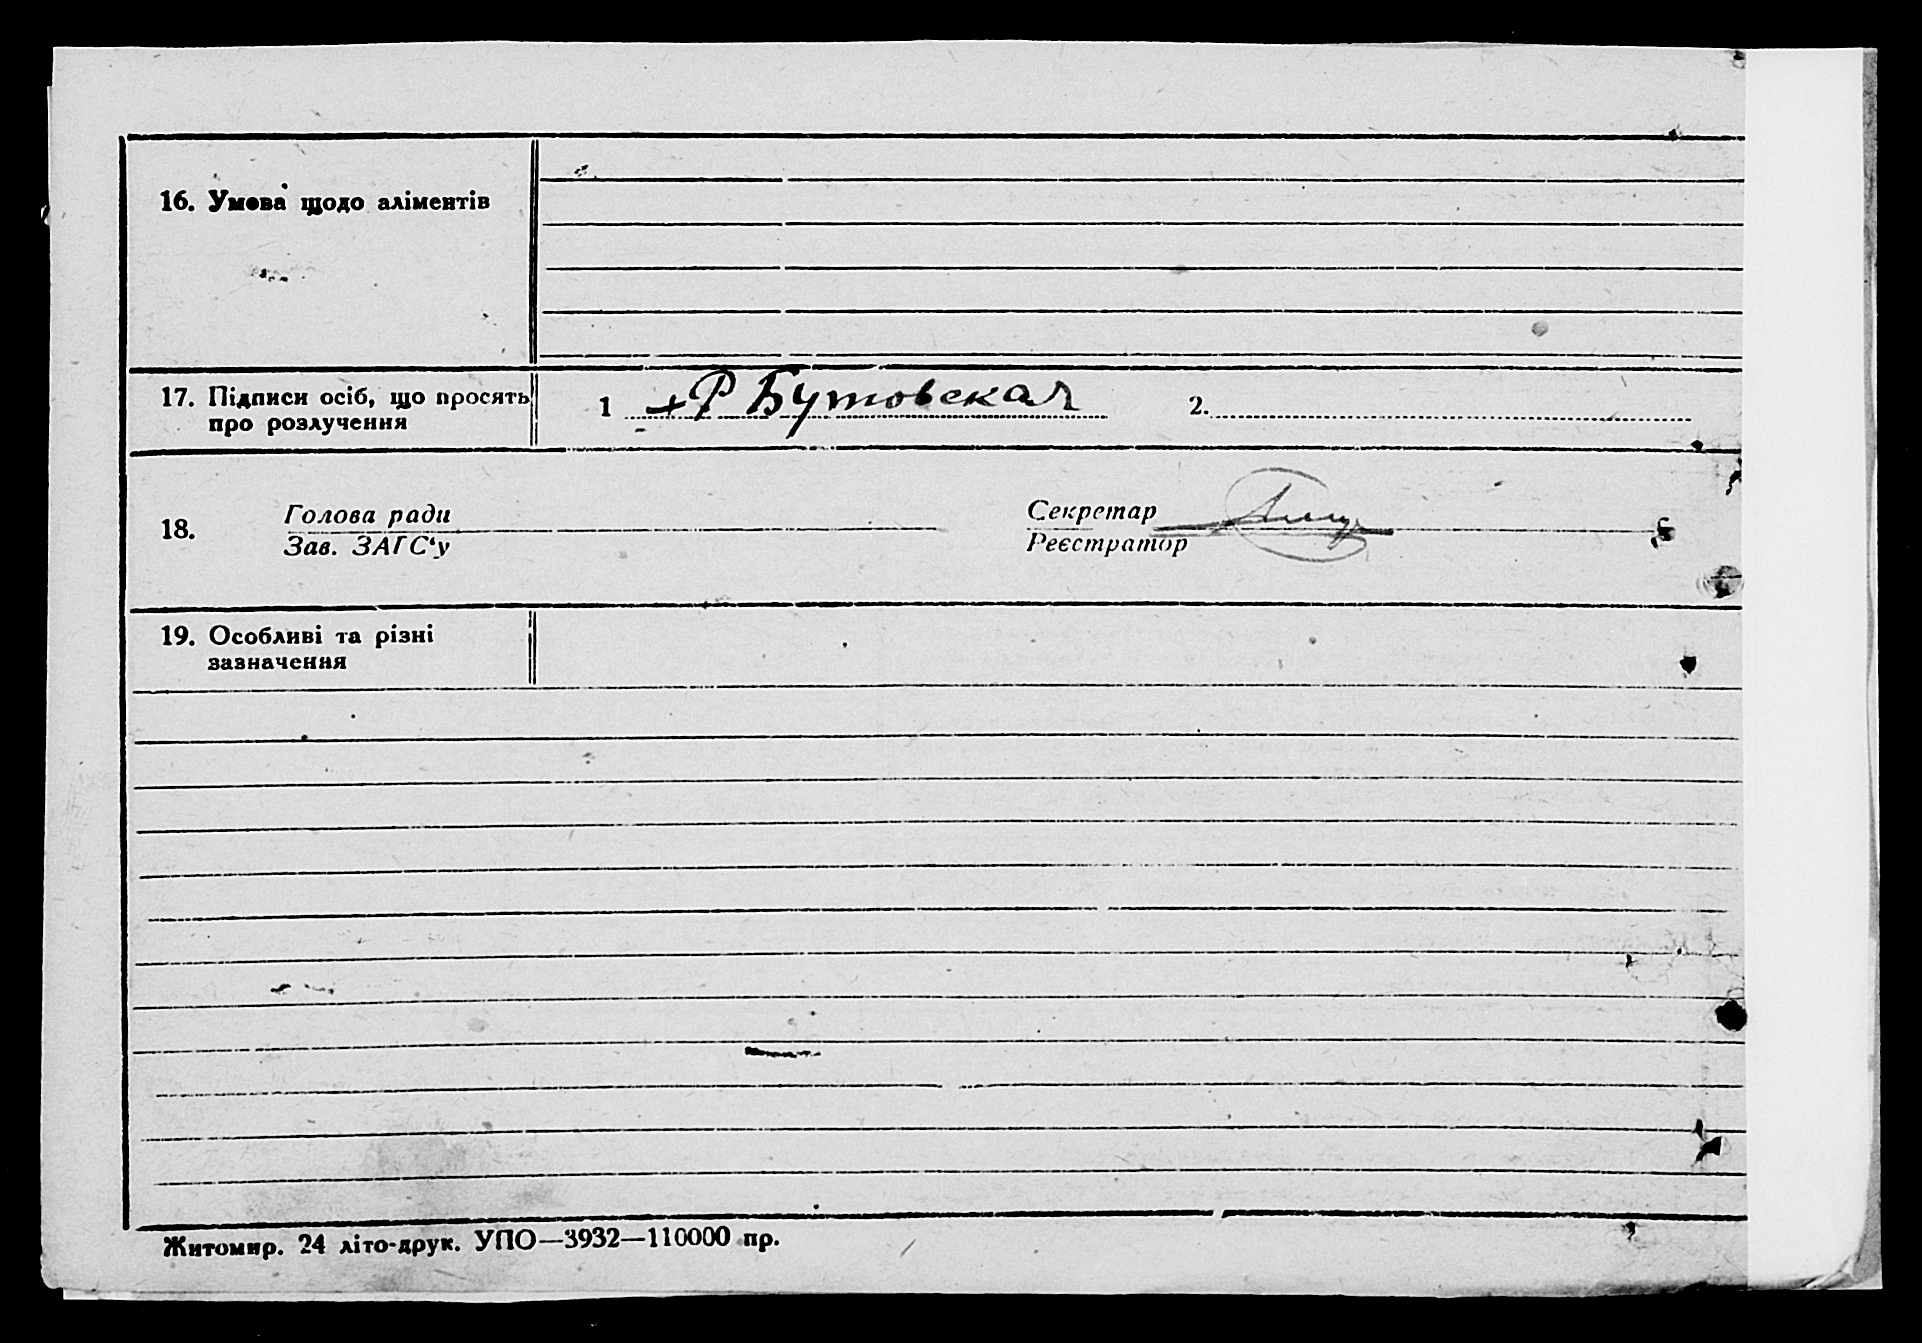 16. Умова щодо аліментів
17. Підписи осіб, що просять
про розлучення
1 +Р Бутовская 2.
18. Голова ради
Зав. ЗАГС‘у
Секретар
Реєстратор
19. Особливі та різні
зазначення
Житомир. 24 літо-друк. УПО—3932—110000 пр.